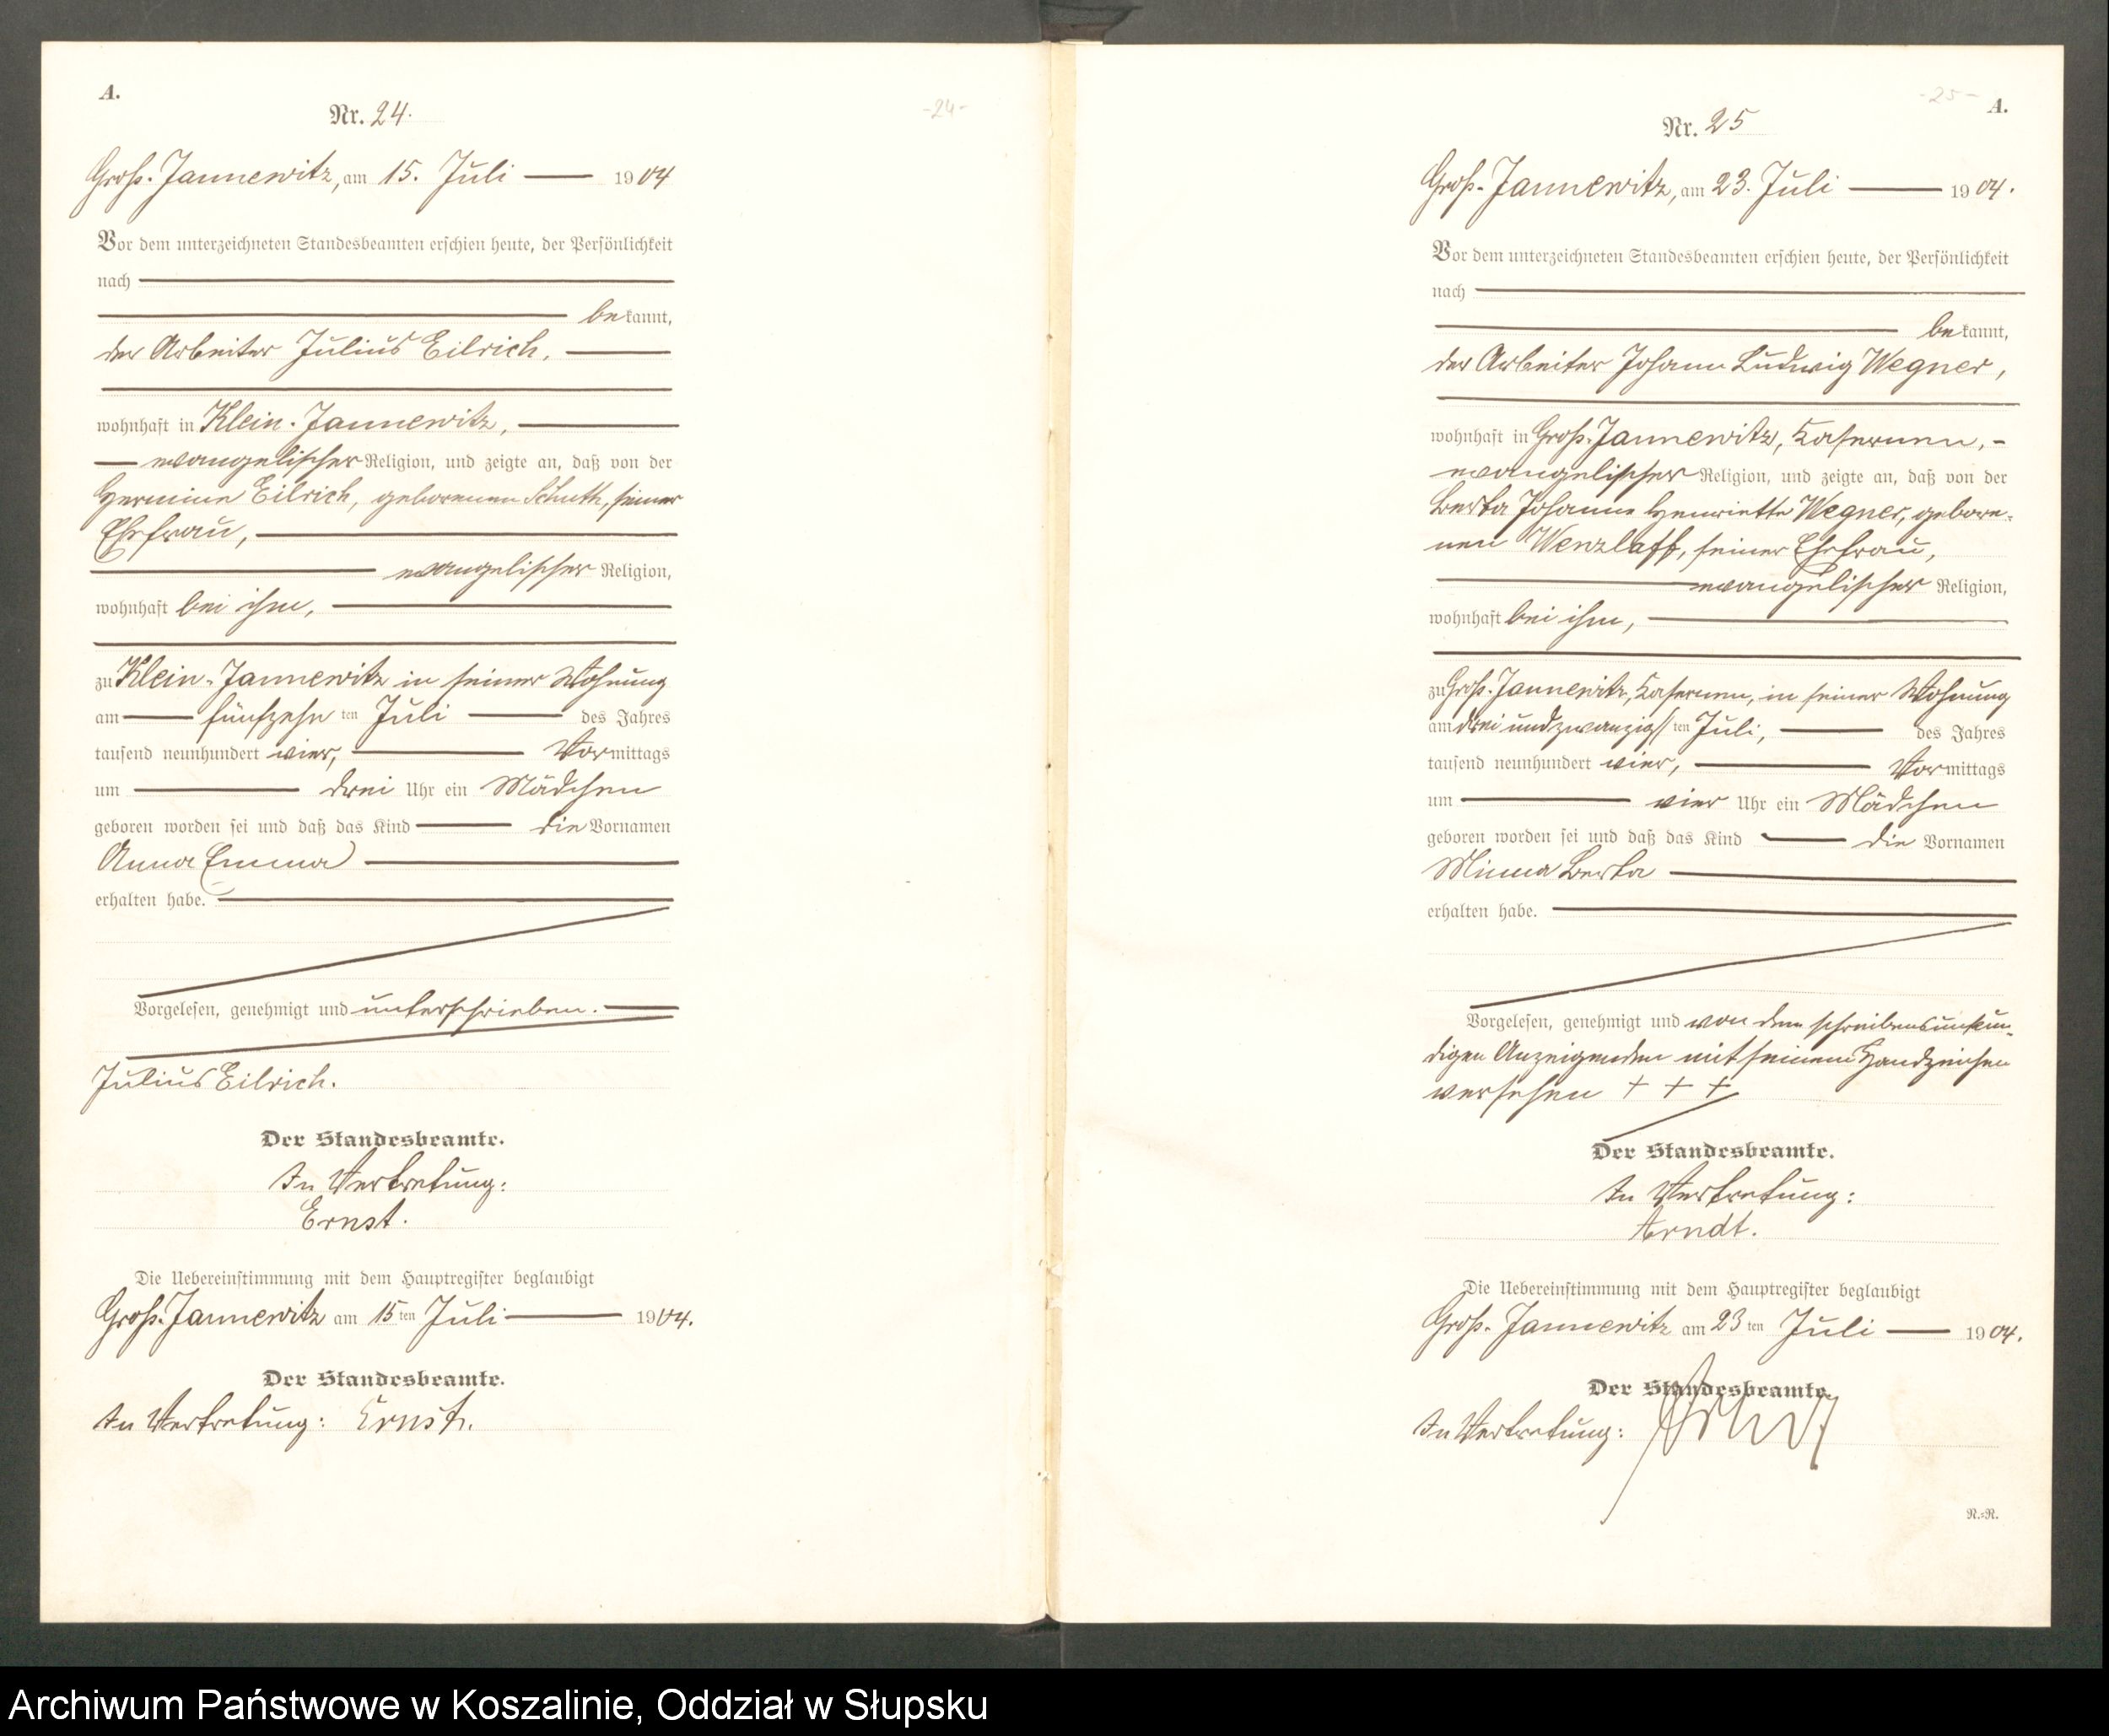 A.
Nr. 24.
-24-
Groß-Jannewitz, am 15. Juli 1904
Vor dem unterzeichneten Standesbeamten erschien heute, der Persönlichkeit
nach
bekannt,
der Arbeiter Julius Eilrich,
wohnhaft in Klein-Jannewitz,
evangelischer Religion, und zeigte an, daß von der
Hermine Eilrich, geborenen Schuth, seiner
Ehefrau,
evangelischer Religion,
wohnhaft bei ihm,
zu Klein-Jannewitz in seiner Wohnung
am fünfzehn ten Juli des Jahres
tausend neunhundert vier, Vormittags
um drei Uhr ein Mädchen
geboren worden sei und daß das Kind die Vornamen
Anna Emma
erhalten habe.
Vorgelesen, genehmigt und unterschrieben.
Julius Eilrich.
Der Standesbeamte.
In Vertretung:
Ernst.
Die Uebereinstimmung mit dem Hauptregister beglaubigt
Groß-Jannewitz am 15 ten Juli 1904.
Der Standesbeamte.
In Vertretung: Ernst.
-25-
A.
Nr. 25
Groß-Jannewitz, am 23. Juli 1904.
Vor dem unterzeichneten Standesbeamten erschien heute, der Persönlichkeit
nach
bekannt,
der Arbeiter Johann Ludwig Wegner,
wohnhaft in Groß-Jannewitz, Kasernen,
evangelischer Religion, und zeigte an, daß von der
Berta Johanne Henriette Wegner, gebore-
nen Wenzlaff, seiner Ehefrau,
evangelischer Religion,
wohnhaft bei ihm,
zu Groß-Jannewitz, Kasernen, in seiner Wohnung
am drei und zwanzigs ten Juli, des Jahres
tausend neunhundert vier, Vormittags
um vier Uhr ein Mädchen
geboren worden sei und daß das Kind die Vornamen
Minna Berta
erhalten habe.
Vorgelesen, genehmigt und von dem schreibensunkun-
digen Anzeigenden mit seinem Handzeichen
versehen + + +
Der Standesbeamte.
In Vertretung:
Arndt.
Die Uebereinstimmung mit dem Hauptregister beglaubigt
Groß-Jannewitz am 23 ten Juli 1904.
Der Standesbeamte.
In Vertretung: Arndt
R.-R.
Archiwum Państwowe w Koszalinie, Oddział w Słupsku